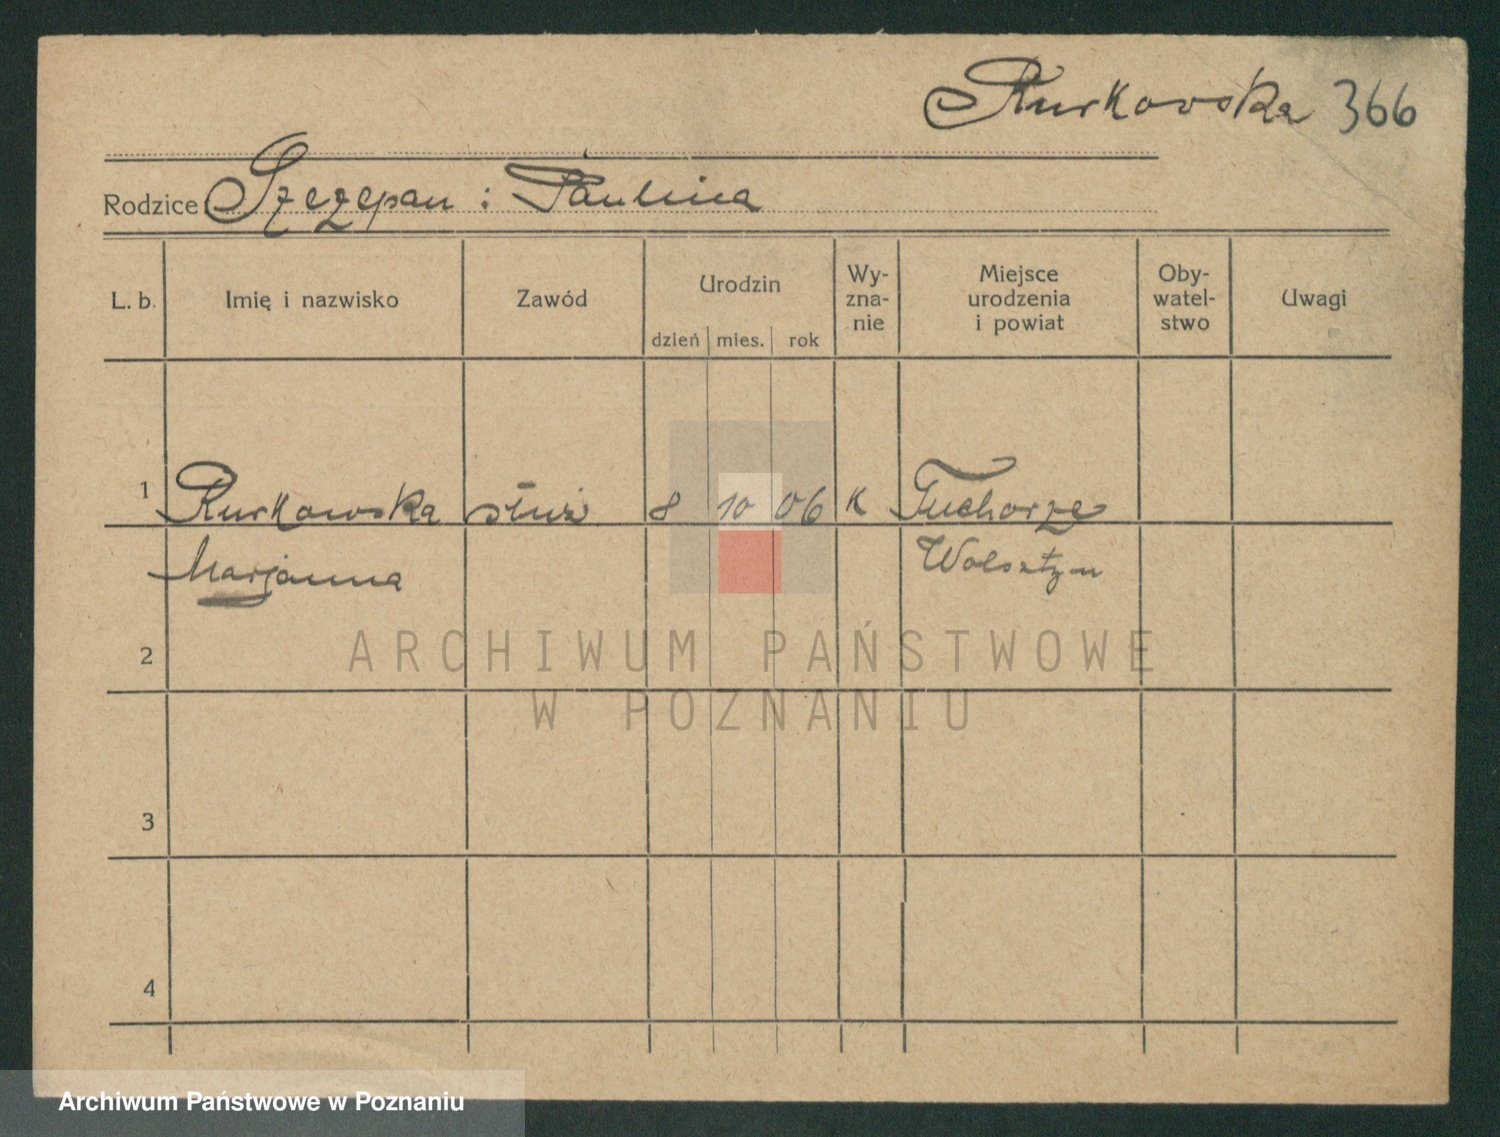 Rurkowska 366
Rodzice Szczepan i Paulina
L. b. Imię i nazwisko Zawód Urodzin Wy-zna-nie Miejsce urodzenia i powiat Oby-watel-stwo Uwagi
dzień mies. rok
1 Rurkowska służ 8 10 06 K Tuchorze
Marjanna Wolsztyn
2
3
4
ARCHIWUM PAŃSTWOWE
W POZNANIU
Archiwum Państwowe w Poznaniu